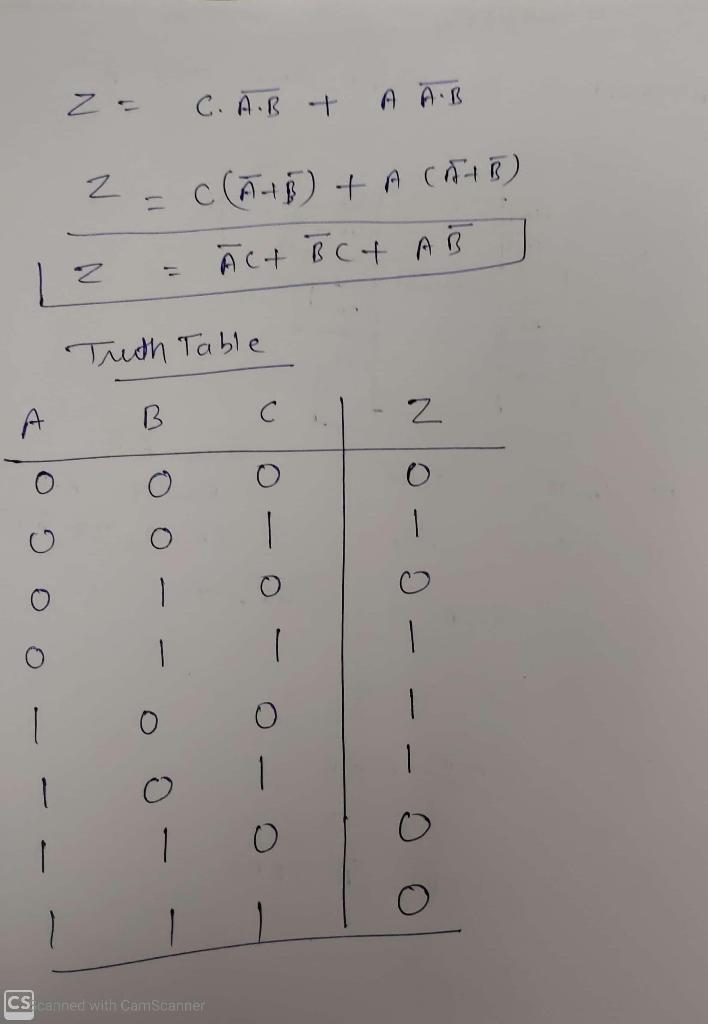 Z = C. A̅.̅B̅ + A A̅.̅B̅
Z = C(A̅+B̅) + A (A̅+B̅)
Z = A̅C+ B̅C+ AB̅
Truth Table
A B C Z
0 0 0 0
0 0 1 1
0 1 0 0
0 1 1 1
1 0 0 1
1 0 1 1
1 1 0 0
1 1 1 0
CS Scanned with CamScanner